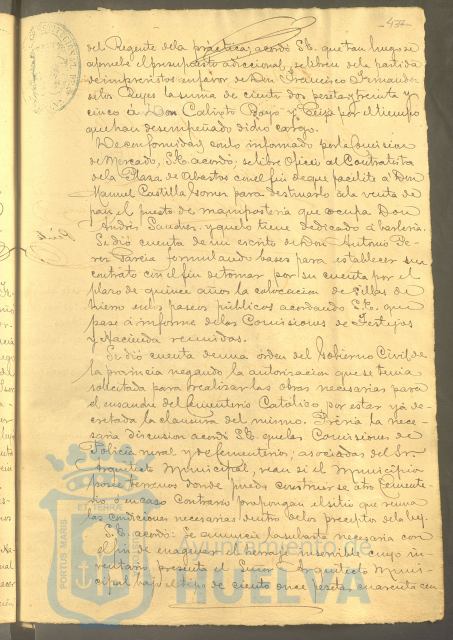 437
del Regente de la práctica; acordó S.E. que tan luego se
apruebe el presupuesto adicional, se libre de la partida
de imprevistos en favor de Don Francisco Fernandez
de los Reyes la suma de ciento dos pesetas y treinta y
cinco á Don Calixto Rayo y por el tiempo
que han desempeñado dicho cargo.
De conformidad con lo informado por la Comision
de Mercado, S.E. acordó, se libre oficio al Contratista
de la Plaza de Abastos con el fin de que facilite á Don
Manuel Castilla para destinarlo á la venta de
pan, el puesto de mampostería que ocupa Don
Andrés Sanchez y que lo tiene dedicado á barbería.
Se dió cuenta de un escrito de Don Antonio Pe-
rez García formulando bases para establecer un
contrato con el fin de tomar por su cuenta por el
plazo de quince años la colocacion de sillas de
hierro en los paseos públicos acordando S.E. que
pase á informe de las Comisiones de Festejos
y Hacienda reunidas.
Se dió cuenta de una orden del Gobierno Civil de
la provincia negando la autorizacion que se tenia
solicitada para realizar las obras necesarias para
el ensanche del Cementerio Católico por estar yá de-
cretada la clausura del mismo. Prévia la nece-
saria discusion acordó S.E. que las Comisiones de
Policía rural y de Cementerio, asociadas del Sr.
Arquitecto Municipal, vean si el Municipio
posee terrenos donde pueda construirse otro Cemente-
rio ó en caso contrario propongan el sitio que reuna
las condiciones necesarias dentro de los preceptos de la ley.
S.E. acordó: Se anuncie la subasta necesaria con
el fin de enagenar el cuyo in-
ventario, presenta el Señor Arquitecto Muni-
cipal bajo el tipo de ciento once pesetas cuarenta cen
PORTUS MARIS ET TERRÆ CUSTODIA
Ayuntamiento de
HUELVA